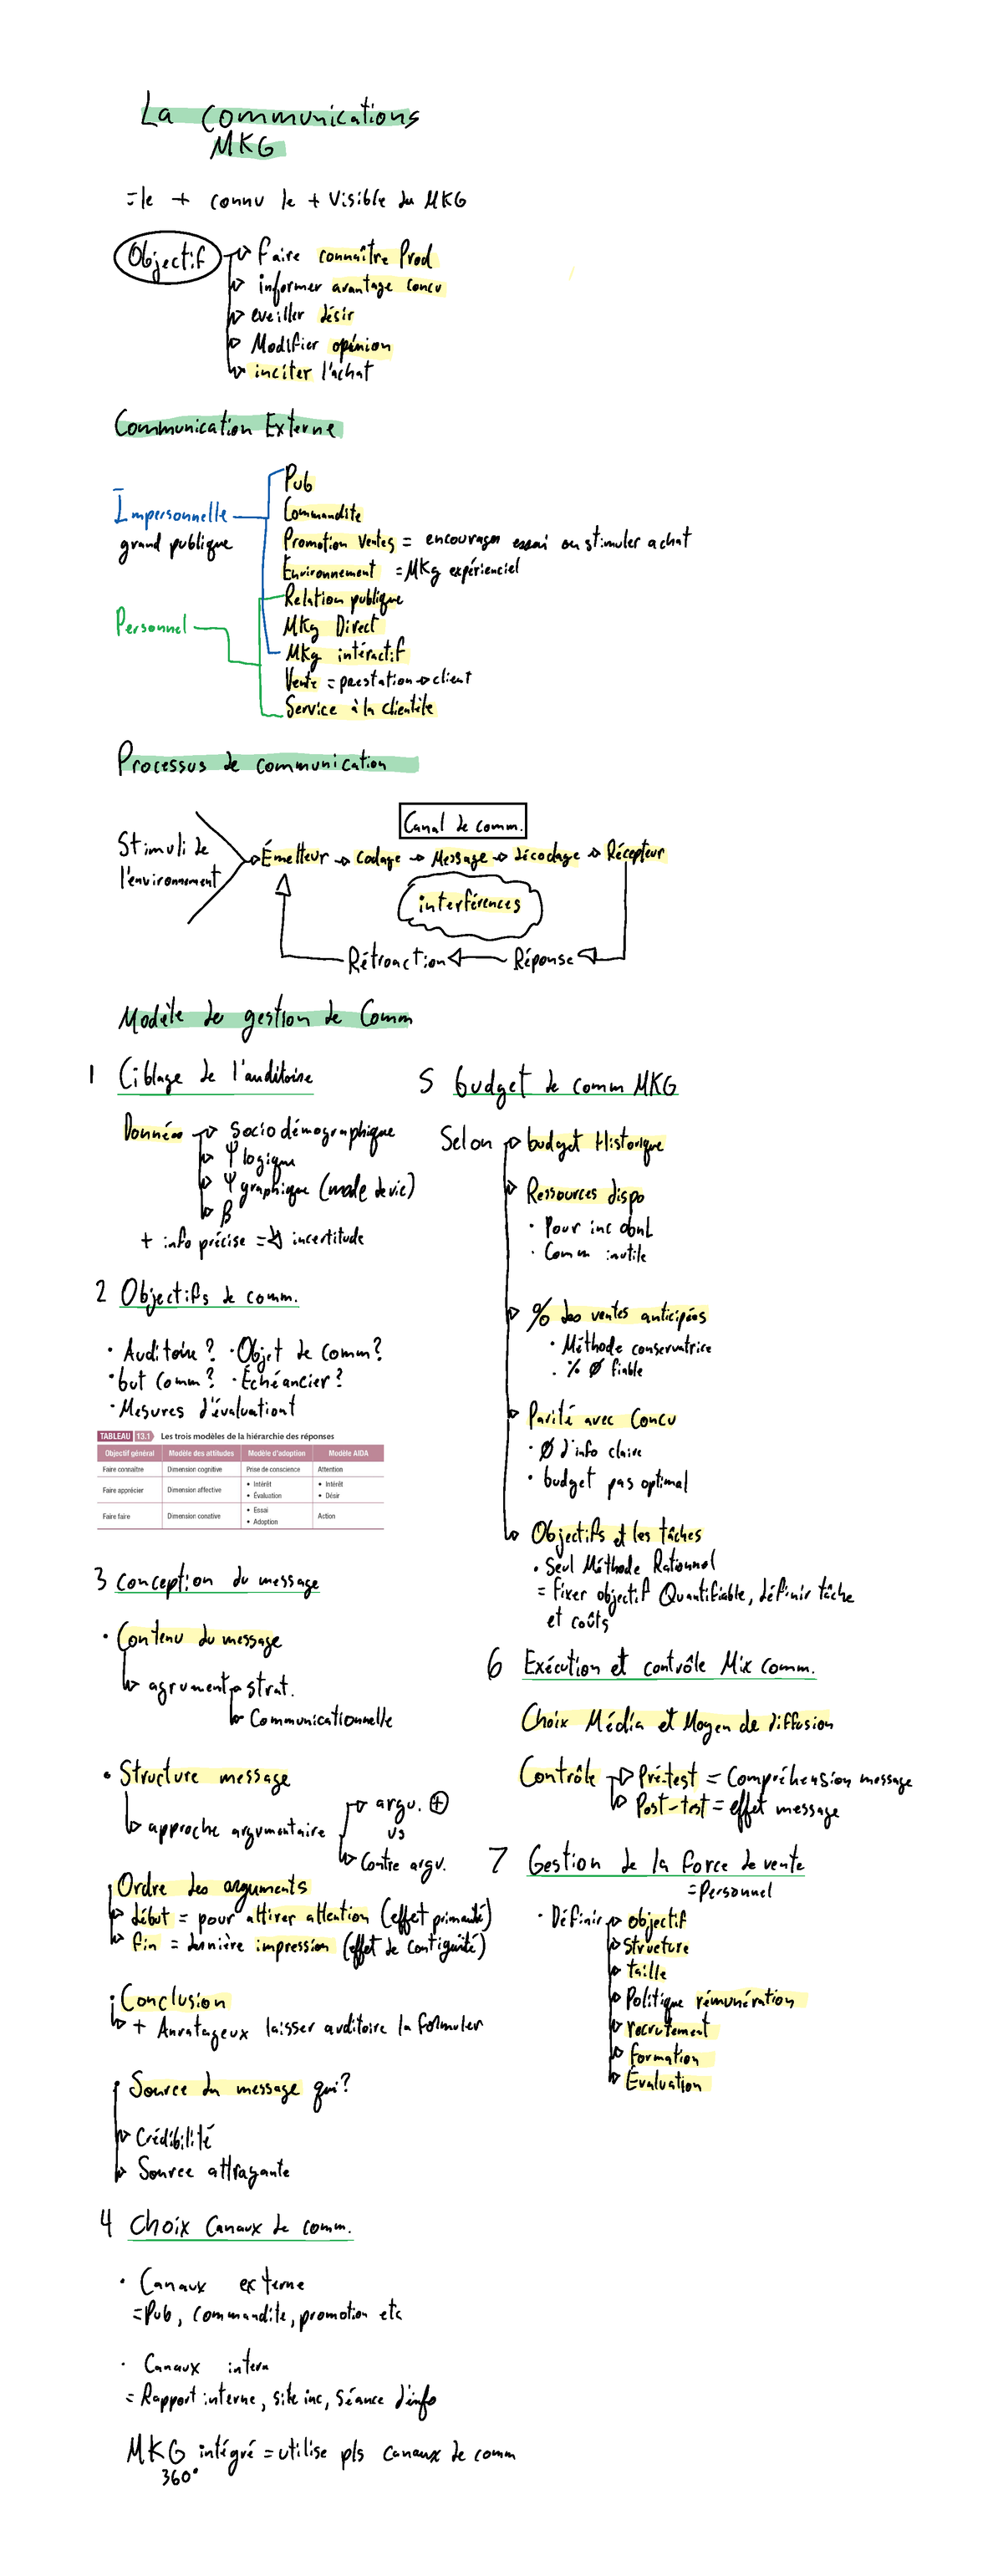 La Communications
MKG
= le + connu le + visible du MKG
Objectif
Faire connaître Prod
informer avantage concu
eveiller désir
Modifier opinion
inciter l'achat
Communication Externe
Impersonnelle
grand publique
Personnel
Pub
Commandite
Promotion Ventes = encourager essai ou stimuler achat
Environnement = MKg expérienciel
Relation publique
MKg Direct
MKg intéractif
Vente = prestation → client
Service à la clientèle
Processus de communication
Canal de comm.
Stimuli de
l'environnement
Émetteur → Codage → Message → décodage → Récepteur
interférences
Rétroaction ← Réponse
Modèle de gestion de Comm
1 Ciblage de l'auditoire
Données
Socio démographique
Ψ logique
Ψ graphique (mode de vie)
β
+ info précise = ↘ incertitude
2 Objectifs de comm.
· Auditoire ? · Objet de comm ?
· but comm ? · Échéancier ?
· Mesures d'évaluationt
TABLEAU 13.1 Les trois modèles de la hiérarchie des réponses
Objectif général Modèle des attitudes Modèle d'adoption Modèle AIDA
Faire connaître Dimension cognitive Prise de conscience Attention
Faire apprécier Dimension affective • Intérêt • Évaluation • Intérêt • Désir
Faire faire Dimension conative • Essai • Adoption Action
3 conception du message
· Contenu du message
agrument → strat.
Communicationnelle
• Structure message
approche argumentaire
argu. ⊕
vs
Contre argu.
Ordre des arguments
début = pour attirer attention (effet primauté)
fin = dernière impression (effet de contiguité)
Conclusion
+ Anvatageux laisser auditoire la formuler
Source du message qui ?
Crédibilité
Source attrayante
4 Choix Canaux de comm.
· Canaux externe
= Pub, commandite, promotion etc
· Canaux intern
= Rapport interne, site inc, séance d'info
MKG intégré = utilise pls canaux de comm
360°
5 budget de comm MKG
Selon
budget Historique
Ressources dispo
· Pour inc dont
· Comm inutile
% des ventes anticipées
· Méthode conservatrice
· % Ø fiable
Parité avec Concu
· Ø d'info claire
· budget pas optimal
Objectifs et les tâches
· Seul Méthode Rationnel
= fixer objectif Quantifiable, définir tâche
et coûts
6 Exécution et contrôle Mix comm.
Choix Média et Moyen de diffusion
Contrôle
Pré-test = Compréhension message
Post-test = effet message
7 Gestion de la force de vente
= Personnel
· Définir
objectif
Structure
taille
Politique rémunération
recrutement
Formation
Évaluation